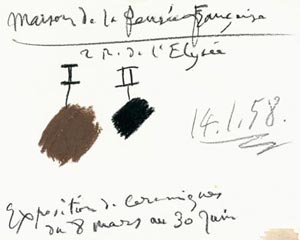 Maison de la Pensée Française
2 R. de l'Elysée
I II
14.1.58.
Exposition de Ceramiques
du 8 mars au 30 Juin